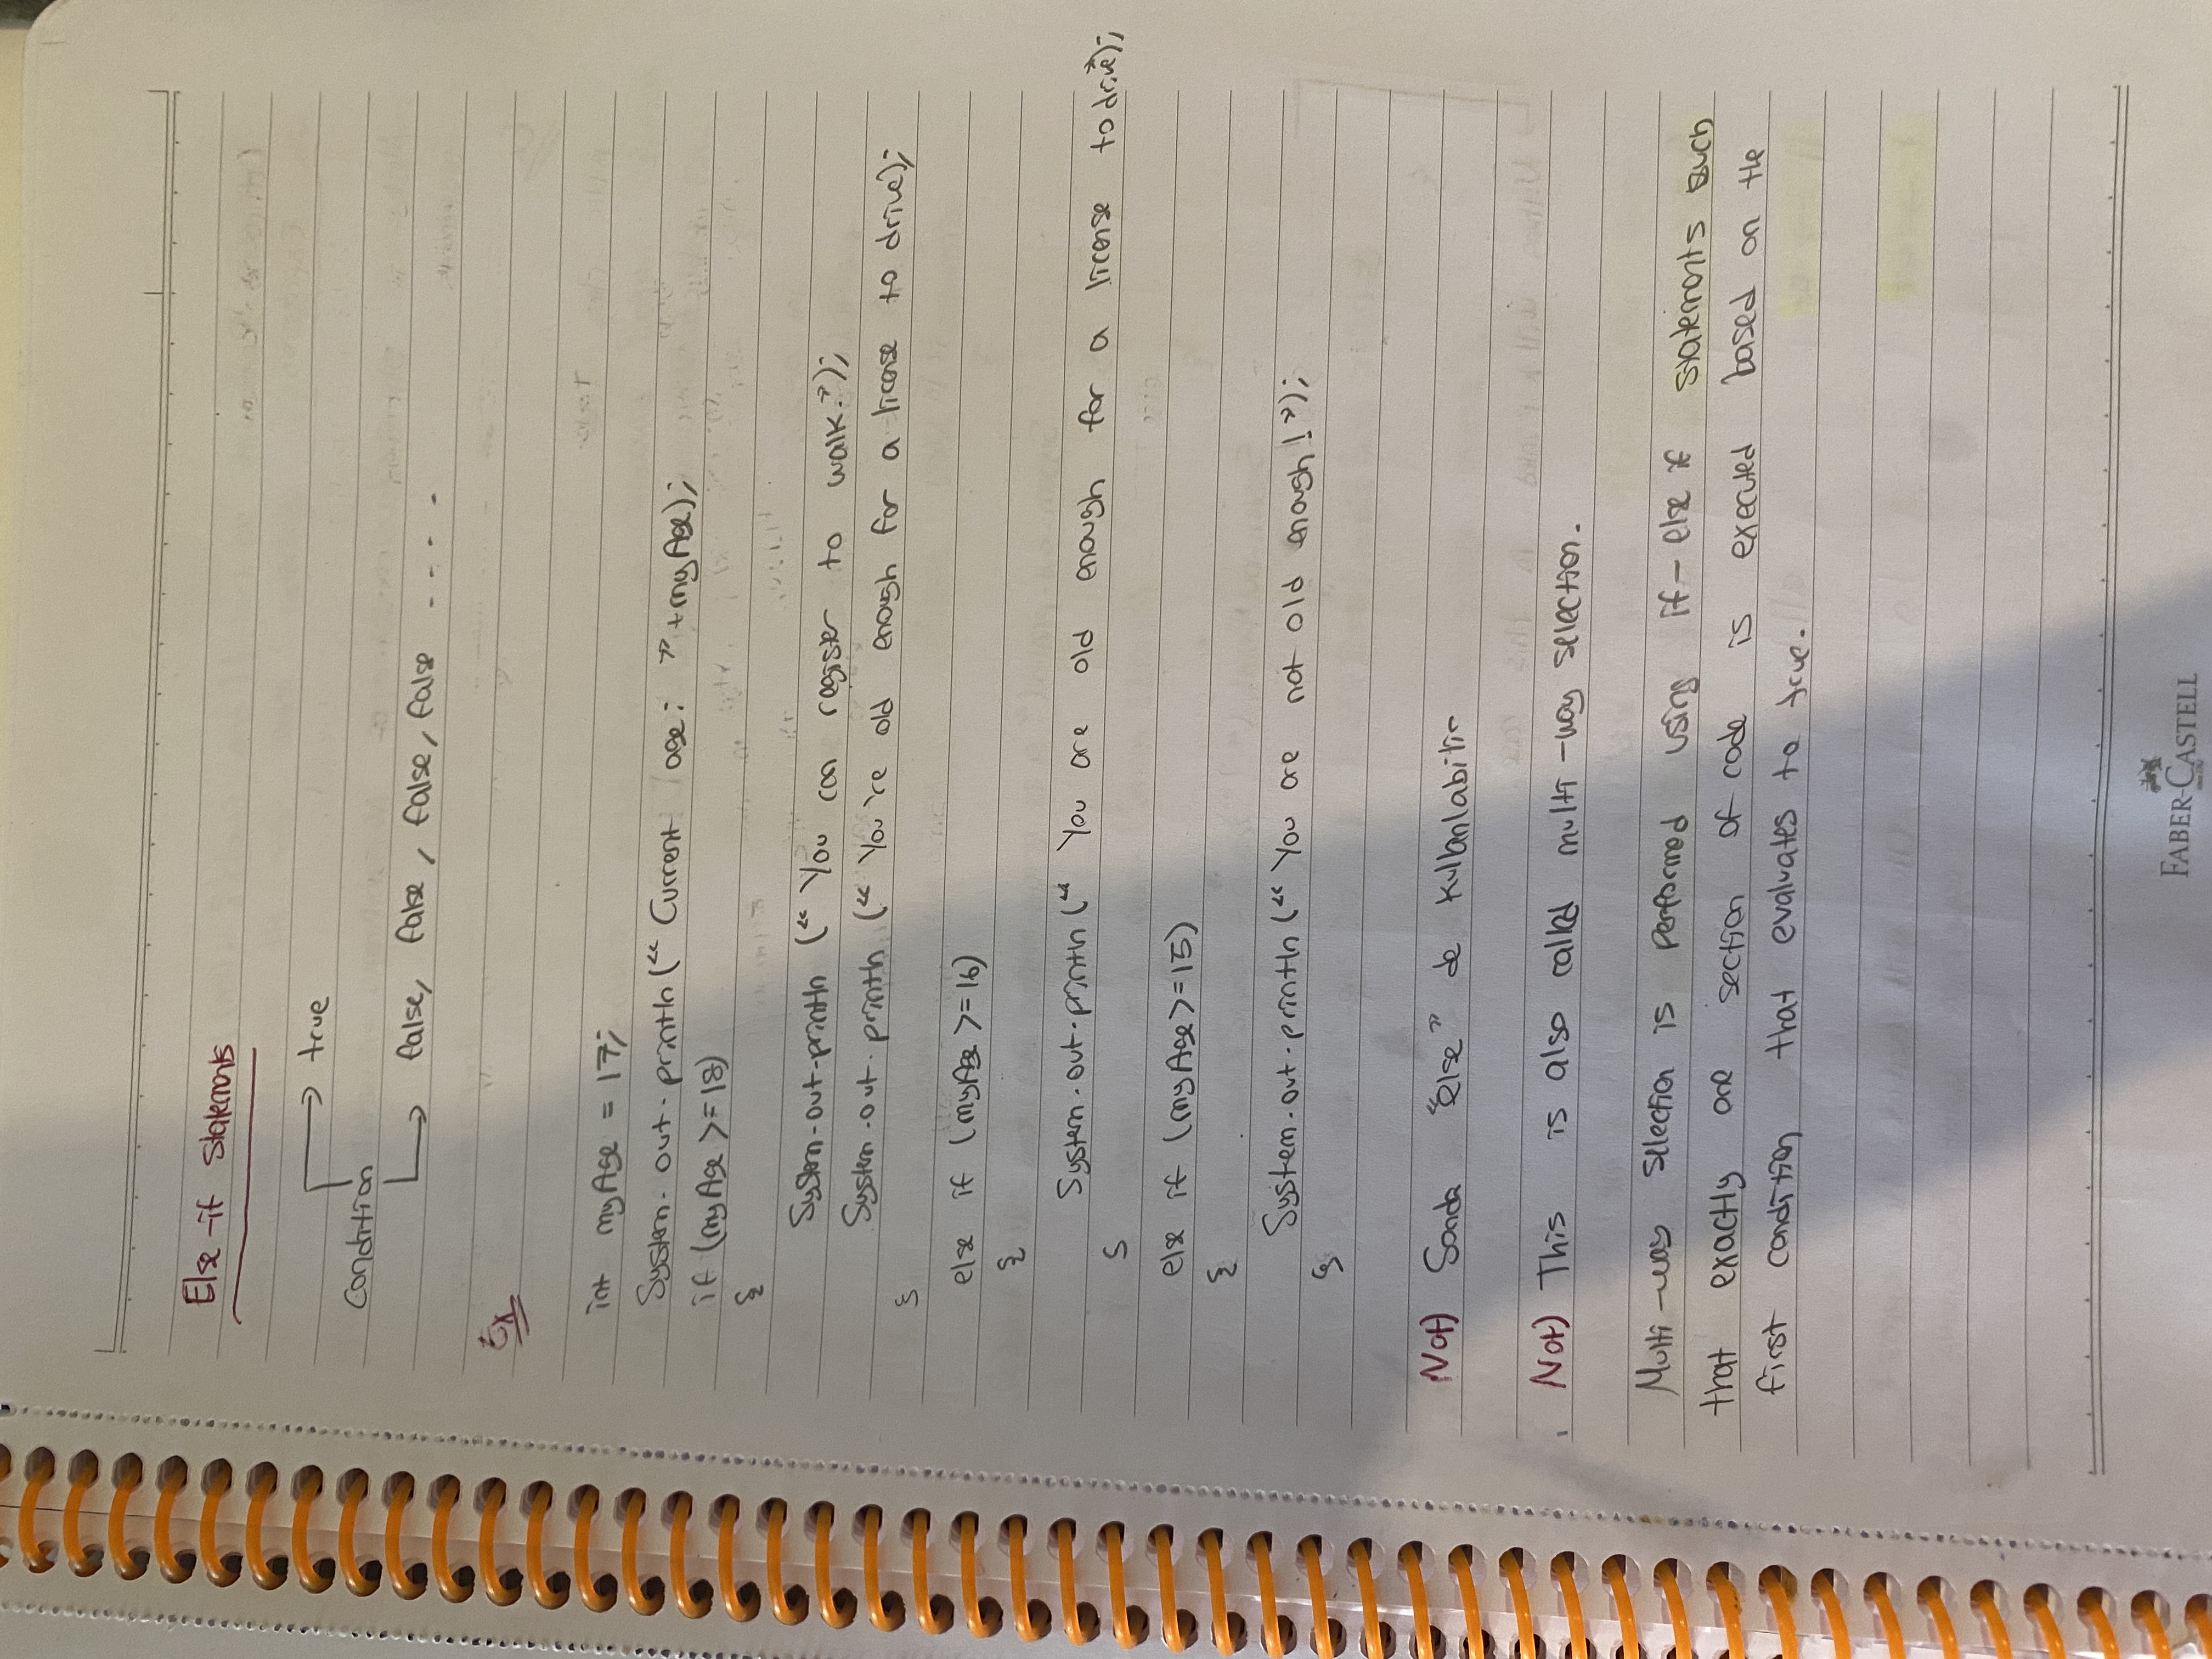 Else-if Statements
true
Condition
false, false, false, false ....
Ex
int myAge = 17;
System.out.println(“Current age: ”+myAge);
if (myAge >=18)
{
System.out.println (“You can register to walk.”);
System.out.println (“You're old enough for a license to drive);
}
else if (myAge >=16)
{
System.out.println (“You are old enough for a license to drive”);
}
else if (myAge >=15)
{
System.out.println (“You are not old enough! ”);
}
Not) Sonda “Else” de kullanılabilir
Not) This is also called multi-way selection.
Multi-way selection is performed using if-else if statements such
that exactly one section of code is executed based on the
first condition that evaluates to true.
FABER-CASTELL
since 1761